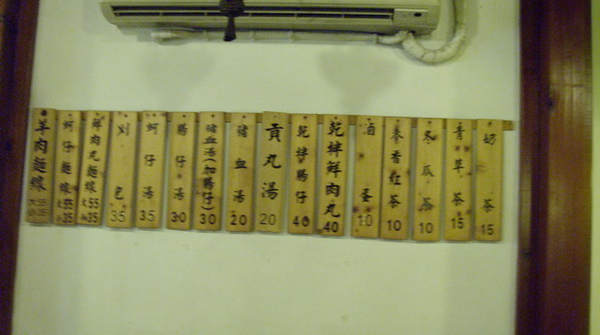 羊肉麵線 大55 小35
蚵仔麵線 大55 小35
鮮肉丸麵線 大55 小35
刈包 35
蚵仔湯 35
腸仔湯 30
豬血湯(加腸仔) 30
豬血湯 20
貢丸湯 20
乾拌腸仔 40
乾拌鮮肉丸 40
滷蛋 10
麥香紅茶 10
冬瓜茶 10
青草茶 15
奶茶 15